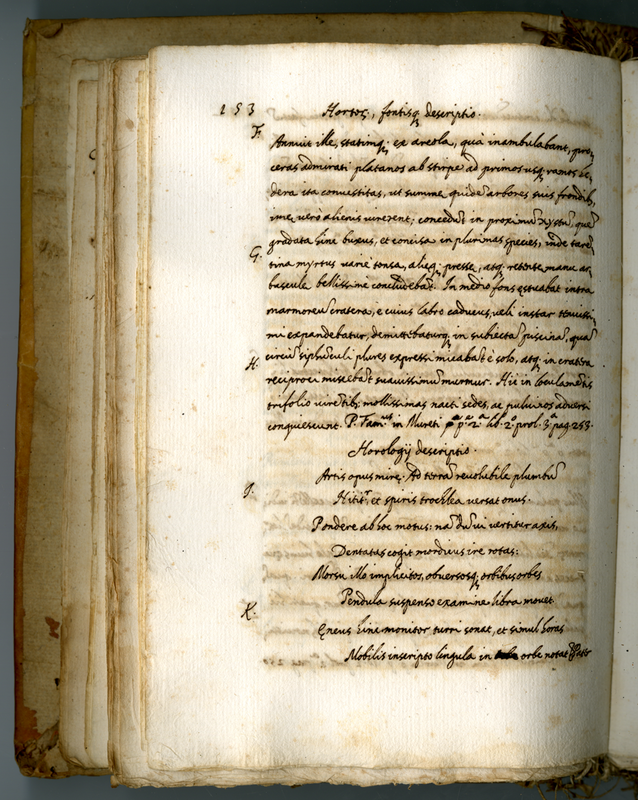 153 Hortoȝ, fontisqȝ descriptio.
F.
Annuit ille, statimqȝ ex areola, quà inambulabant, pro
ceras admirati platanos ab stirpe ad primos usqȝ ramos he
dera ita convestitas, ut summe quidē arbores suis frondibȝ
ime verò alienis uirerent; concedūt in proximū xystū, quē
gradata hinc buxus, et concisa in plurimas species, inde tarē
G.
tina myrtus variè tonsa, alieqȝ presse, atqȝ retente manu ar
buscule bellissimè concludebāt. In medio fons ęstuabat intra
marmoreū cratera, e cuius labro caducus, ueli instar tenuissi
mi expandebatur, demittebaturqȝ in subiectā piscinā, quā
circū siphūculi plures expressi micabāt è solo, atqȝ in cratera
H.
reciproci miscebāt suauissimū murmur. Hic in loculamētis
trifolio uirētibȝ mollissimas nacti sedes, ac puluinos aduersi
conquiescunt. P. Fam. in Mureti pᵃ pᵉ 2.ᵃ lib. 2.º prol. 3.ᵃ pag. 253.
Horologij descriptio.
Artis opus mirę: Ad terrā reuolubile plumbū
I.
Nititͬ, et spiris trochlea versat onus.
Pondere ab hoc motus: nā dū ui vertitur axis,
Dentatas cogit mordicus ire rotas:
Morsu illo implicitos, obuersosqȝ orbibus orbes
Pendula suspenso examine libra mouet.
K.
Ęneus hinc monitor turri sonat, et simul horas
Mobilis inscripto lingula in orbe notat